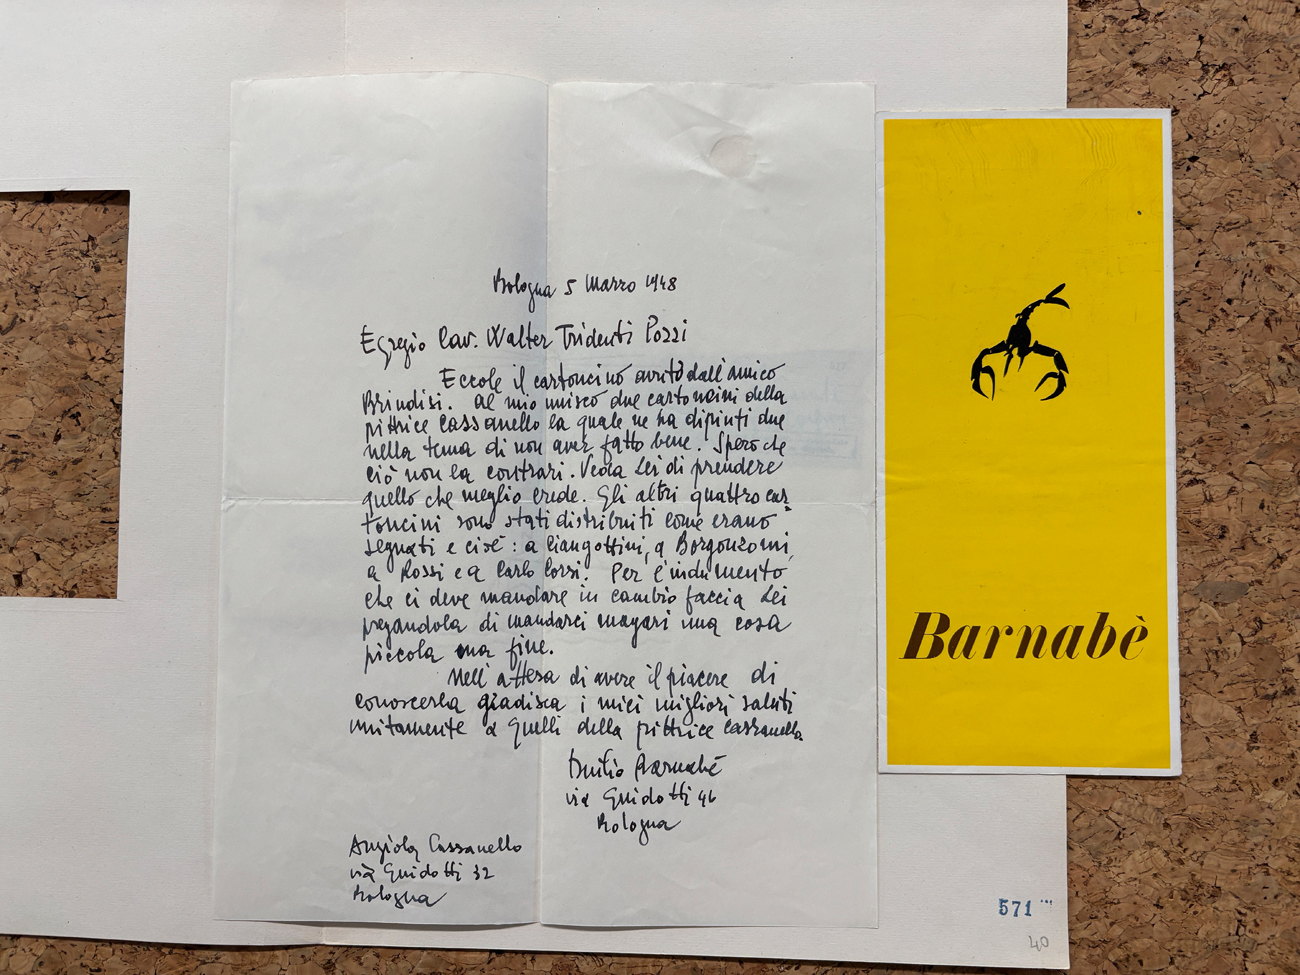 Bologna 5 Marzo 1948
Egregio Cav. Walter Tridenti Pozzi
Eccole il cartoncino avuto dall'amico
Brindisi. Al mio unisco due cartoncini della
pittrice Cassanello la quale ne ha dipinti due
nella tema di non aver fatto bene. Spero che
ciò non la contrari. Veda Lei di prendere
quello che meglio crede. Gli altri quattro car
toncini sono stati distribuiti come erano
segnati e cioè: a Ciangottini, a Borgonzoni,
a Rossi e a Carlo Corsi. Per l'indumento
che ci deve mandare in cambio faccia Lei
pregandola di mandarci magari una cosa
piccola ma fine.
Nell'attesa di avere il piacere di
conoscerla gradisca i miei migliori saluti
unitamente a quelli della pittrice Cassanello
Duilio Barnabè
via Guidotti 46
Bologna
Angiola Cassanello
via Guidotti 32
Bologna
Barnabè
571
40